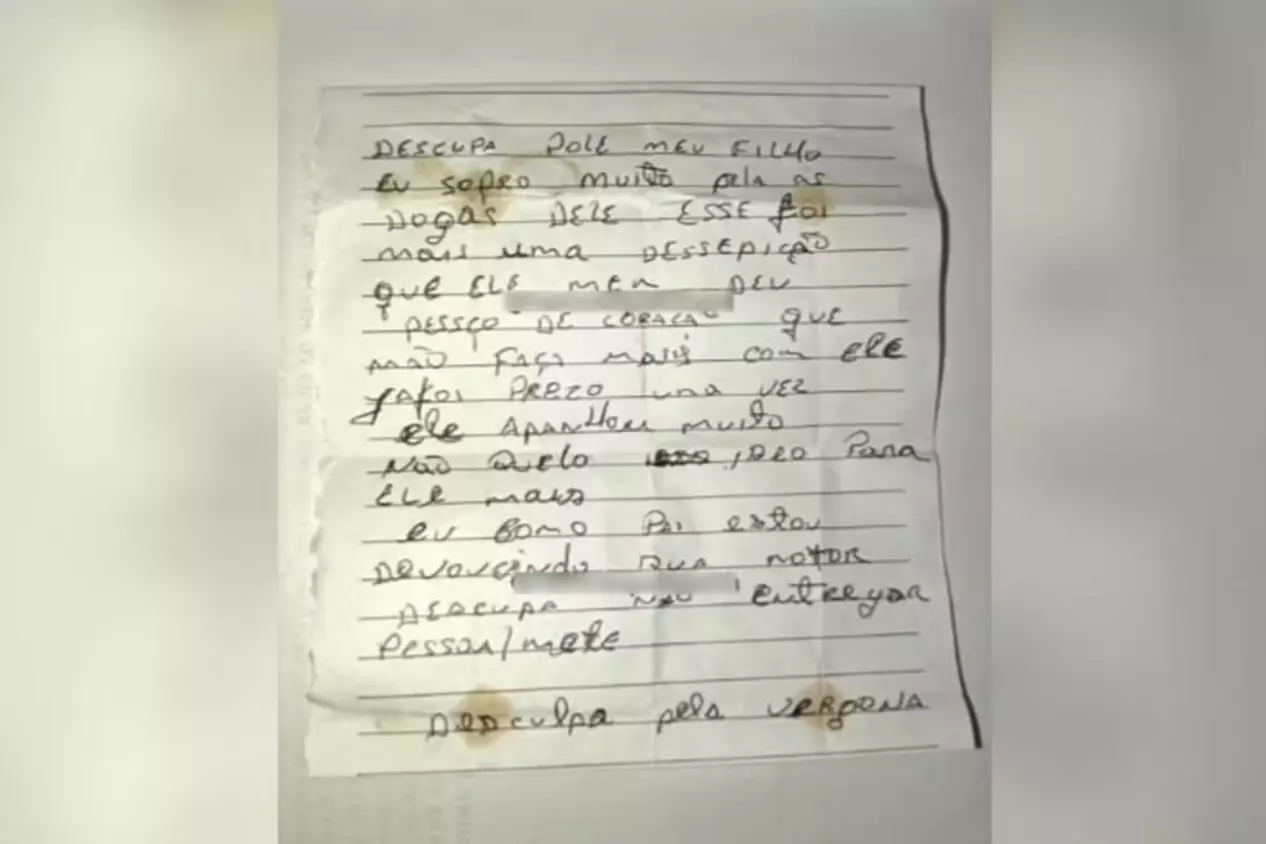 DESCUPA POLE MEU FILHO
EU SOFRO MUITO pela as
DOGAS DELE ESSE foi
mais uma DESSEPIÇÃO
QUE ELE MEU DEU
PESSÇO DE CORAÇAO QUE
NÃO FAÇA MAIS com ELE
JAFOI PREZO uma VEZ
ELE APANHOU muito
NÃO QUELO isso PARA
ELE mais
EU COMO PAI estou
DEVOUCINDO SUA MOTOR
DESCUPA NÃO entregar
PESSOA/METE
DESCULPA pela VERGONA